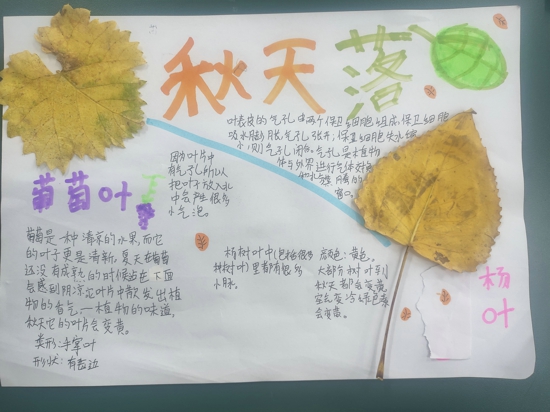 秋天落
叶表皮的气孔由两个保卫细胞组成,保卫细胞
吸水膨胀,气孔张开;保卫细胞失水缩
小,则气孔闭合。气孔是植物
体与外界进行气体交换
窗口。
因为叶片中
有气孔所以
把叶子放入水
中会产生很多
小气泡。
葡萄叶
葡萄是一种清凉的水果,而它
的叶子更是清新,夏天在葡萄
还没有成熟的时候站在下面
会感到阴凉,叶片中散发出植
物的香气,一植物的味道,
秋天它的叶片会变黄。
类形:手掌叶
形状:有
杨树叶中(包括很多
种树叶)里都有很多
小脉。
颜色:黄色。
大部分树叶到
秋天都会变黄
会变黄。
杨
叶